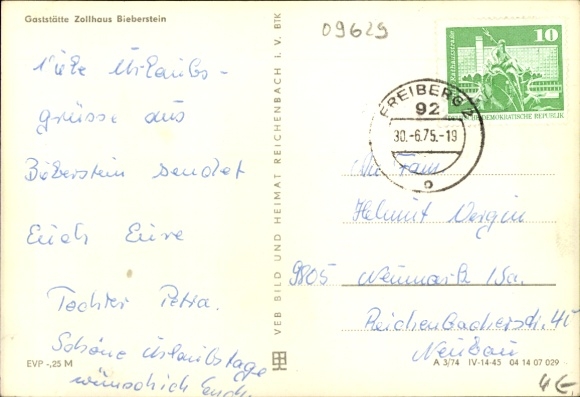 Gaststätte Zollhaus Bieberstein
09629
Viele Urlaubs-
grüsse aus
Bieberstein sendet
Euch Eure
Tochter Petra.
Schöne Urlaubstage
wünsch ich Euch
EVP -,25 M
VEB BILD UND HEIMAT REICHENBACH I. V. BTK
10
Rathausstraße
DEUTSCHE DEMOKRATISCHE REPUBLIK
FREIBERG 2
92
30.-6.75.-19
o
Fam
Helmut Wergin
9805 Neumark/Sa.
Reichenbacherstr. 45
Neubau
A 3/74 IV-14-45 04 14 07 029
4€